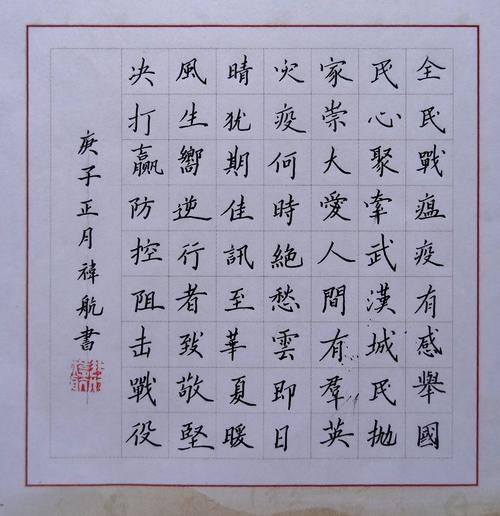 全民戰瘟疫有感舉國
民心聚牽武漢城民拋
家崇大愛人間有羣英
灾疫何時絕愁雲即日
晴犹期佳訊至華夏暖
風生嚮逆行者致敬堅
决打贏防控阻击戰役
庚子正月禕航書